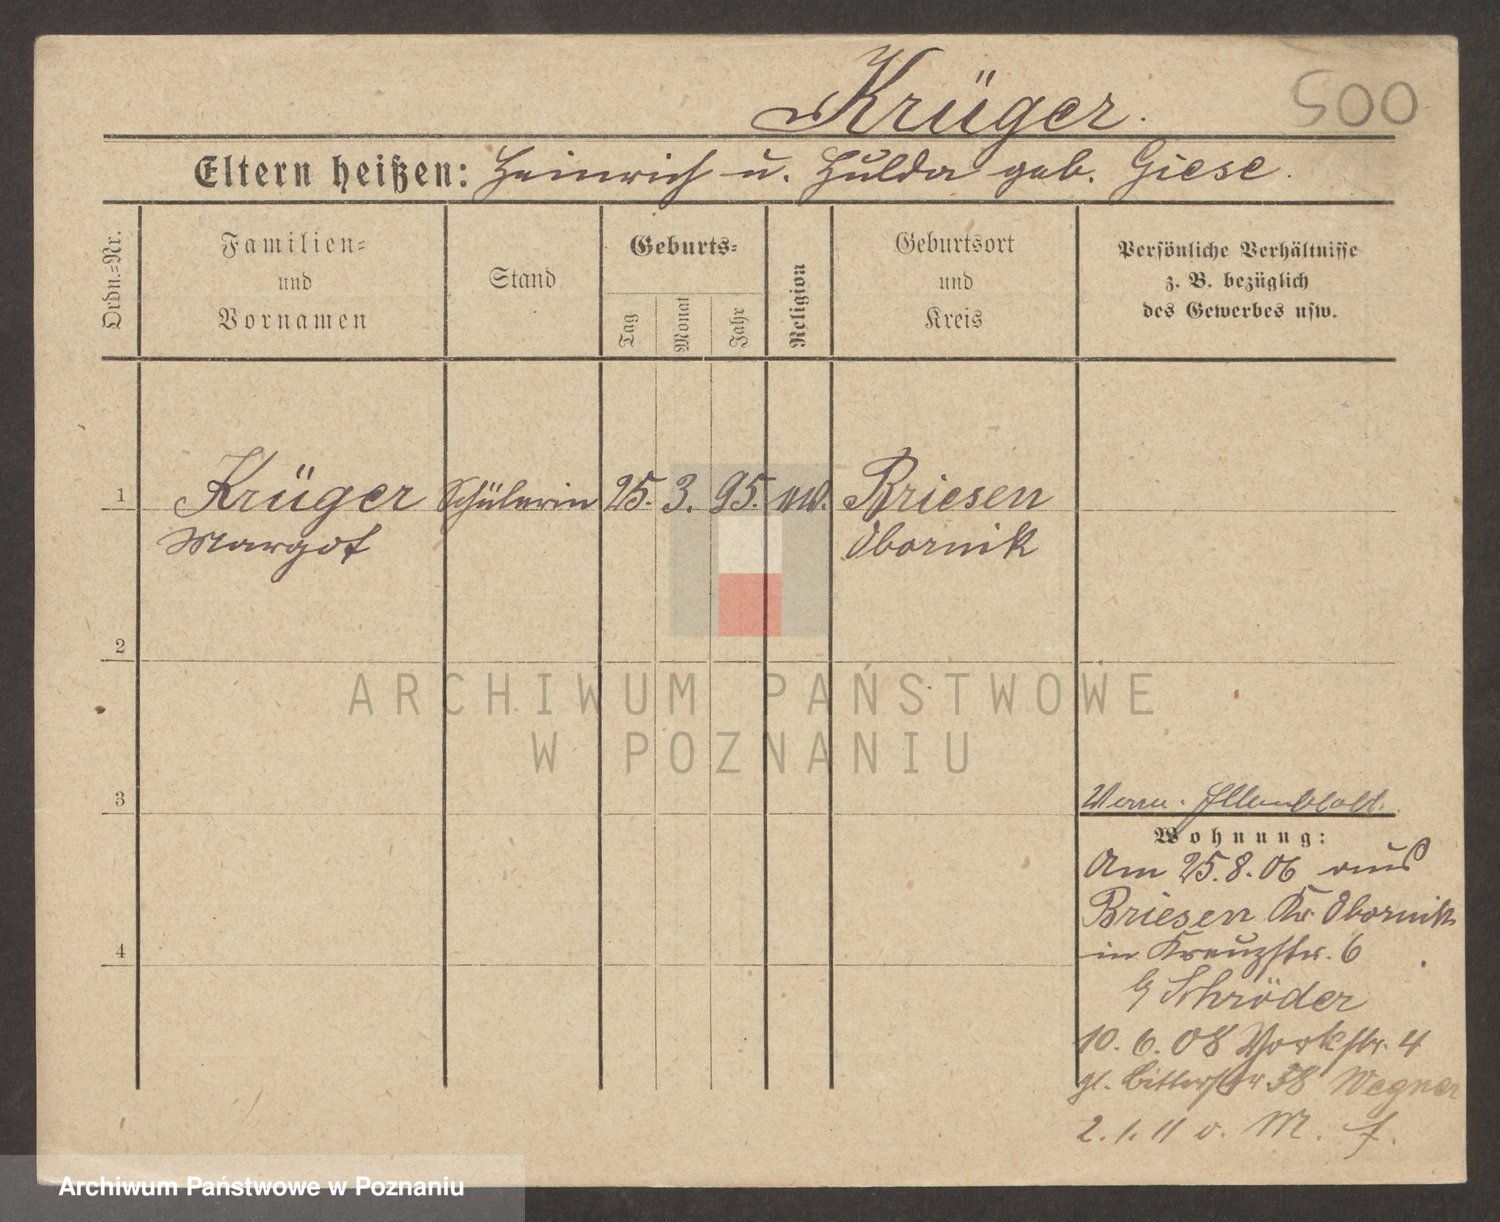 Krüger.
500
Eltern heißen: Heinrich u. Hulda geb. Giese.
Ordn.=Nr.
Familien=
und
Vornamen
Stand
Geburts=
Tag
Monat
Jahr
Religion
Geburtsort
und
Kreis
Persönliche Verhältnisse
z. B. bezüglich
des Gewerbes usw.
1
Krüger Schülerin 25. 3. 95. Briesen
Margot Obornik
2
ARCHIWUM PAŃSTWOWE
W POZNANIU
3
Wohnung:
Am 25.8.06 aus
Briesen Kr. Obornik
in Kreuzstr. 6
b/ Schröder
10. 6. 08 Yorkstr. 4
58 Wegner
4
2. 1. 11 v. M.
Archiwum Państwowe w Poznaniu